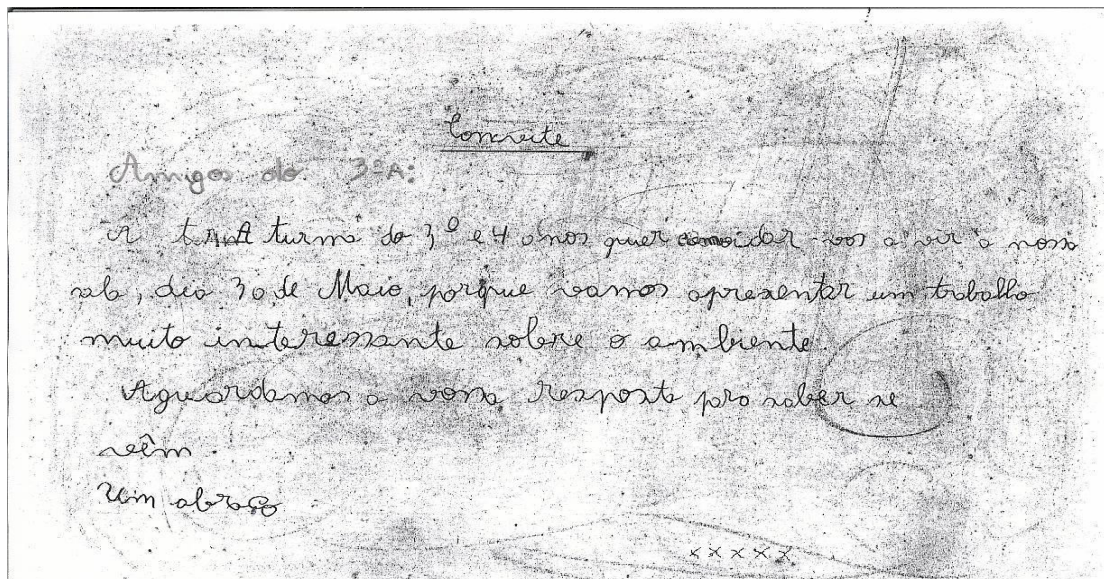 Convite
Amigos do 3ºA:
A turma do 3º e 4 anos quer convidar-vos a vir à nossa
sala, dia 30 de Maio, porque vamos apresentar um trabalho
muito interessante sobre o ambiente.
Aguardamos a vossa resposta pra saber se
vêm.
Um abraço
xxxxx